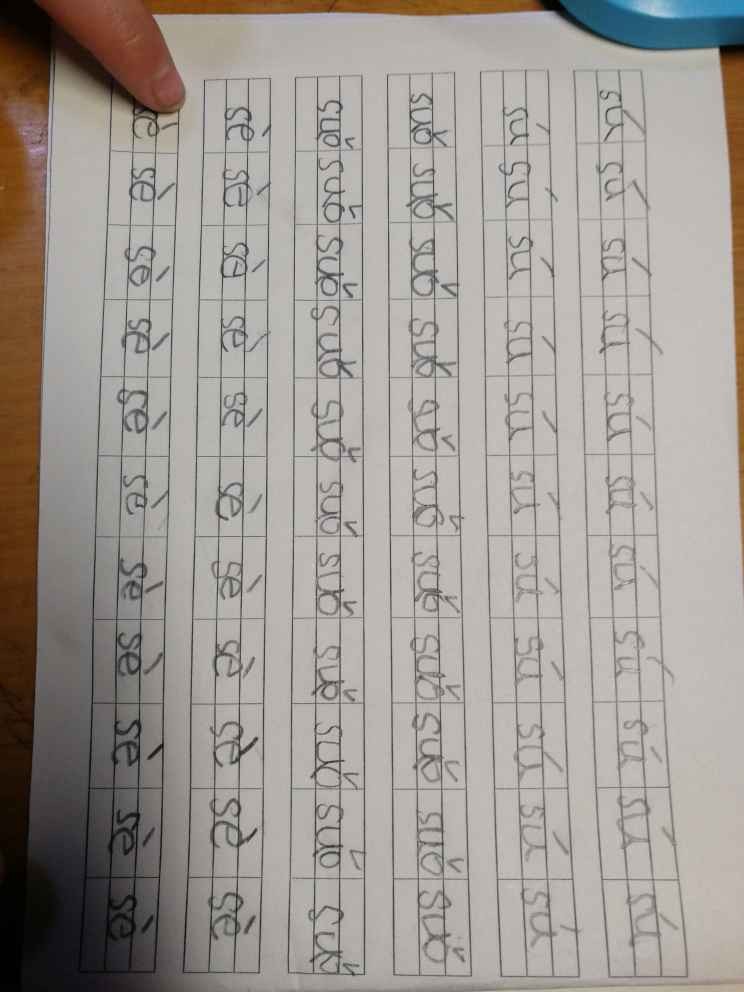 sú sú sú sú sú sú sú sú sú sú sú
sú sú sú sú sú sú sú sú sú sú sú
suǒ suǒ suǒ suǒ sǒ suǒ suǒ suǒ suǒ suǒ suǒ
suǒ suǒ suǒ suǒ suǒ suǒ suǒ suǒ suǒ suǒ suǒ
sè sè sè sè sè sè sè sè sè sè sè
sè sè sè sè sè sè sè sè sè sè sè